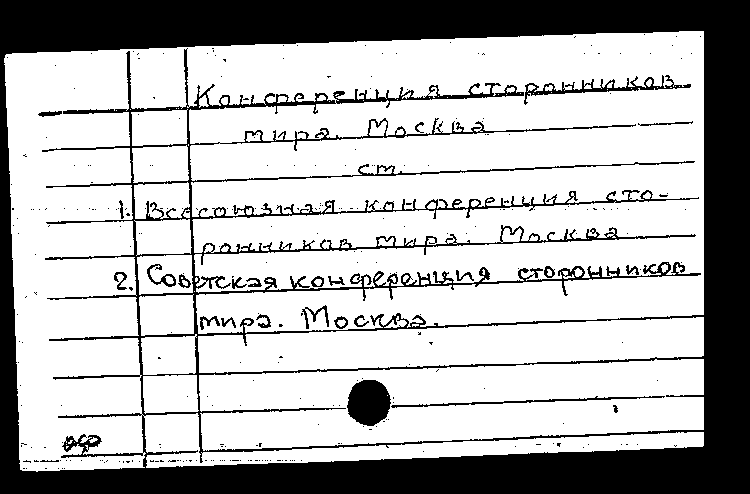 Конференция сторонников
мира. Москва
ст.
1. Всесоюзная конференция сто-
ронников мира. Москва
2. Советская конференция сторонников
мира. Москва.